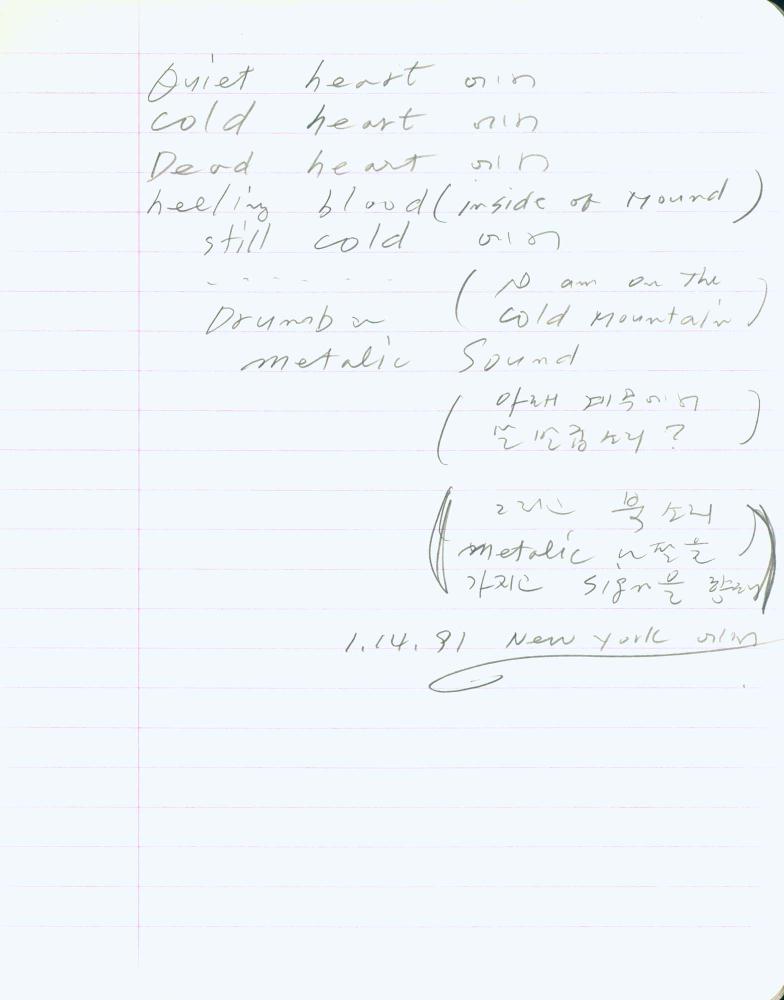 Quiet heart 에서
cold heart 에서
Dead heart 에서
heeling blood (inside of Mound)
still cold 에서
- - - - - - -
(I am on The
Drumb 
cold Mountain)
metalic Sound
(아래 계곡에서
소리?)
(그리고 북소리
metalic 을
가지고 sign을 향해)
1.14.91 New York 에서